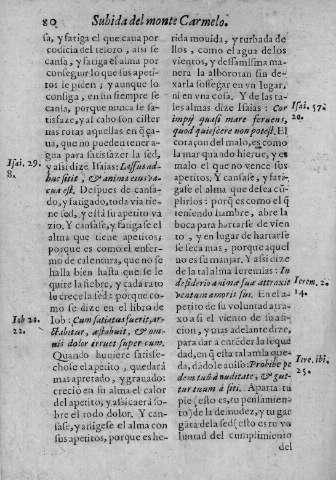 80 Subida del monte Carmelo.
sa, y fatiga el que caua por
codicia del tesoro, assi se
cansa, y fatiga el alma por
conseguir lo que sus apeti-
tos le piden; y aunque lo
consiga, en fin siempre se
cansa, porque nunca se sa-
tisfaze, y al cabo son cister
nas rotas aquellas en q̃ ca-
ua, que no pueden tener a-
gua para satisfazer la sed,
Isai. 29.
8.
y assi dize Isaias: Lassus ad-
huc sitit, & anima eius va-
cua est. Despues de cansa-
do, y fatigado, todavia tie-
ne sed, y està su apetito va
zio. Y cansase, y fatigase el
alma que tiene apetitos,
porque es como el enfer-
mo de calentura, que no se
halla bien hasta que se le
quite la fiebre, y cada rato
le crece la sed: porque co-
mo se dize en el libro de
Iob 20.
22.
Iob: Cum satiatus fuerit, ar-
ctabitur, æstuabit, & om-
nis dolor irruet super eum.
Quando huuiere satisfe-
chose el apetito, quedarà
mas apretado, y grauado:
crecio en su alma el calor
del apetito, y assi caerà so-
bre el todo dolor. Y can-
sase, y afligese el alma con
sus apetitos, porque es he-
rida mouida, y turbada de
llos, como el agua de los
vientos, y dessa misma ma
nera la alborotan sin de-
xarla sossegar en vn lugar,
ni en vna cosa. Y de las ta-
les almas dize Isaias: Cor
Isai. 57.
20.
impij quasi mare feruens,
quod quiescere non potest. El
coraçon del malo, es como
la mar quando hierue, y es
malo el que no vence sus
apetitos. Y cansase, y fati-
gase el alma que dessea cũ-
plirlos: porq̃ es como el q̃
teniendo hambre, abre la
boca para hartarse de vien
to, y en lugar de hartarse
se seca mas, porque aquel
no es su manjar. Y assi dize
de la tal alma Ieremias: In
Ierem. 2.
24.
desiderio animæ suæ attraxit
ventum amoris sui. En el a-
petito de su voluntad atra-
xo a si el viento de su afi-
cion, y mas adelante dize,
para dar a entẽder la seque
dad, en q̃ esta tal alma que-
da, dadole auiso: Prohibe pe
Iere. ibi.
25.
dem tuũ à nuditate, & gut-
tur tuum à siti. Aparta tu
pie (esto es, tu pensamien-
to) de la desnudez, y tu gar
gãta de la sed (esto es tu vo
luntad del cumplimiento
del